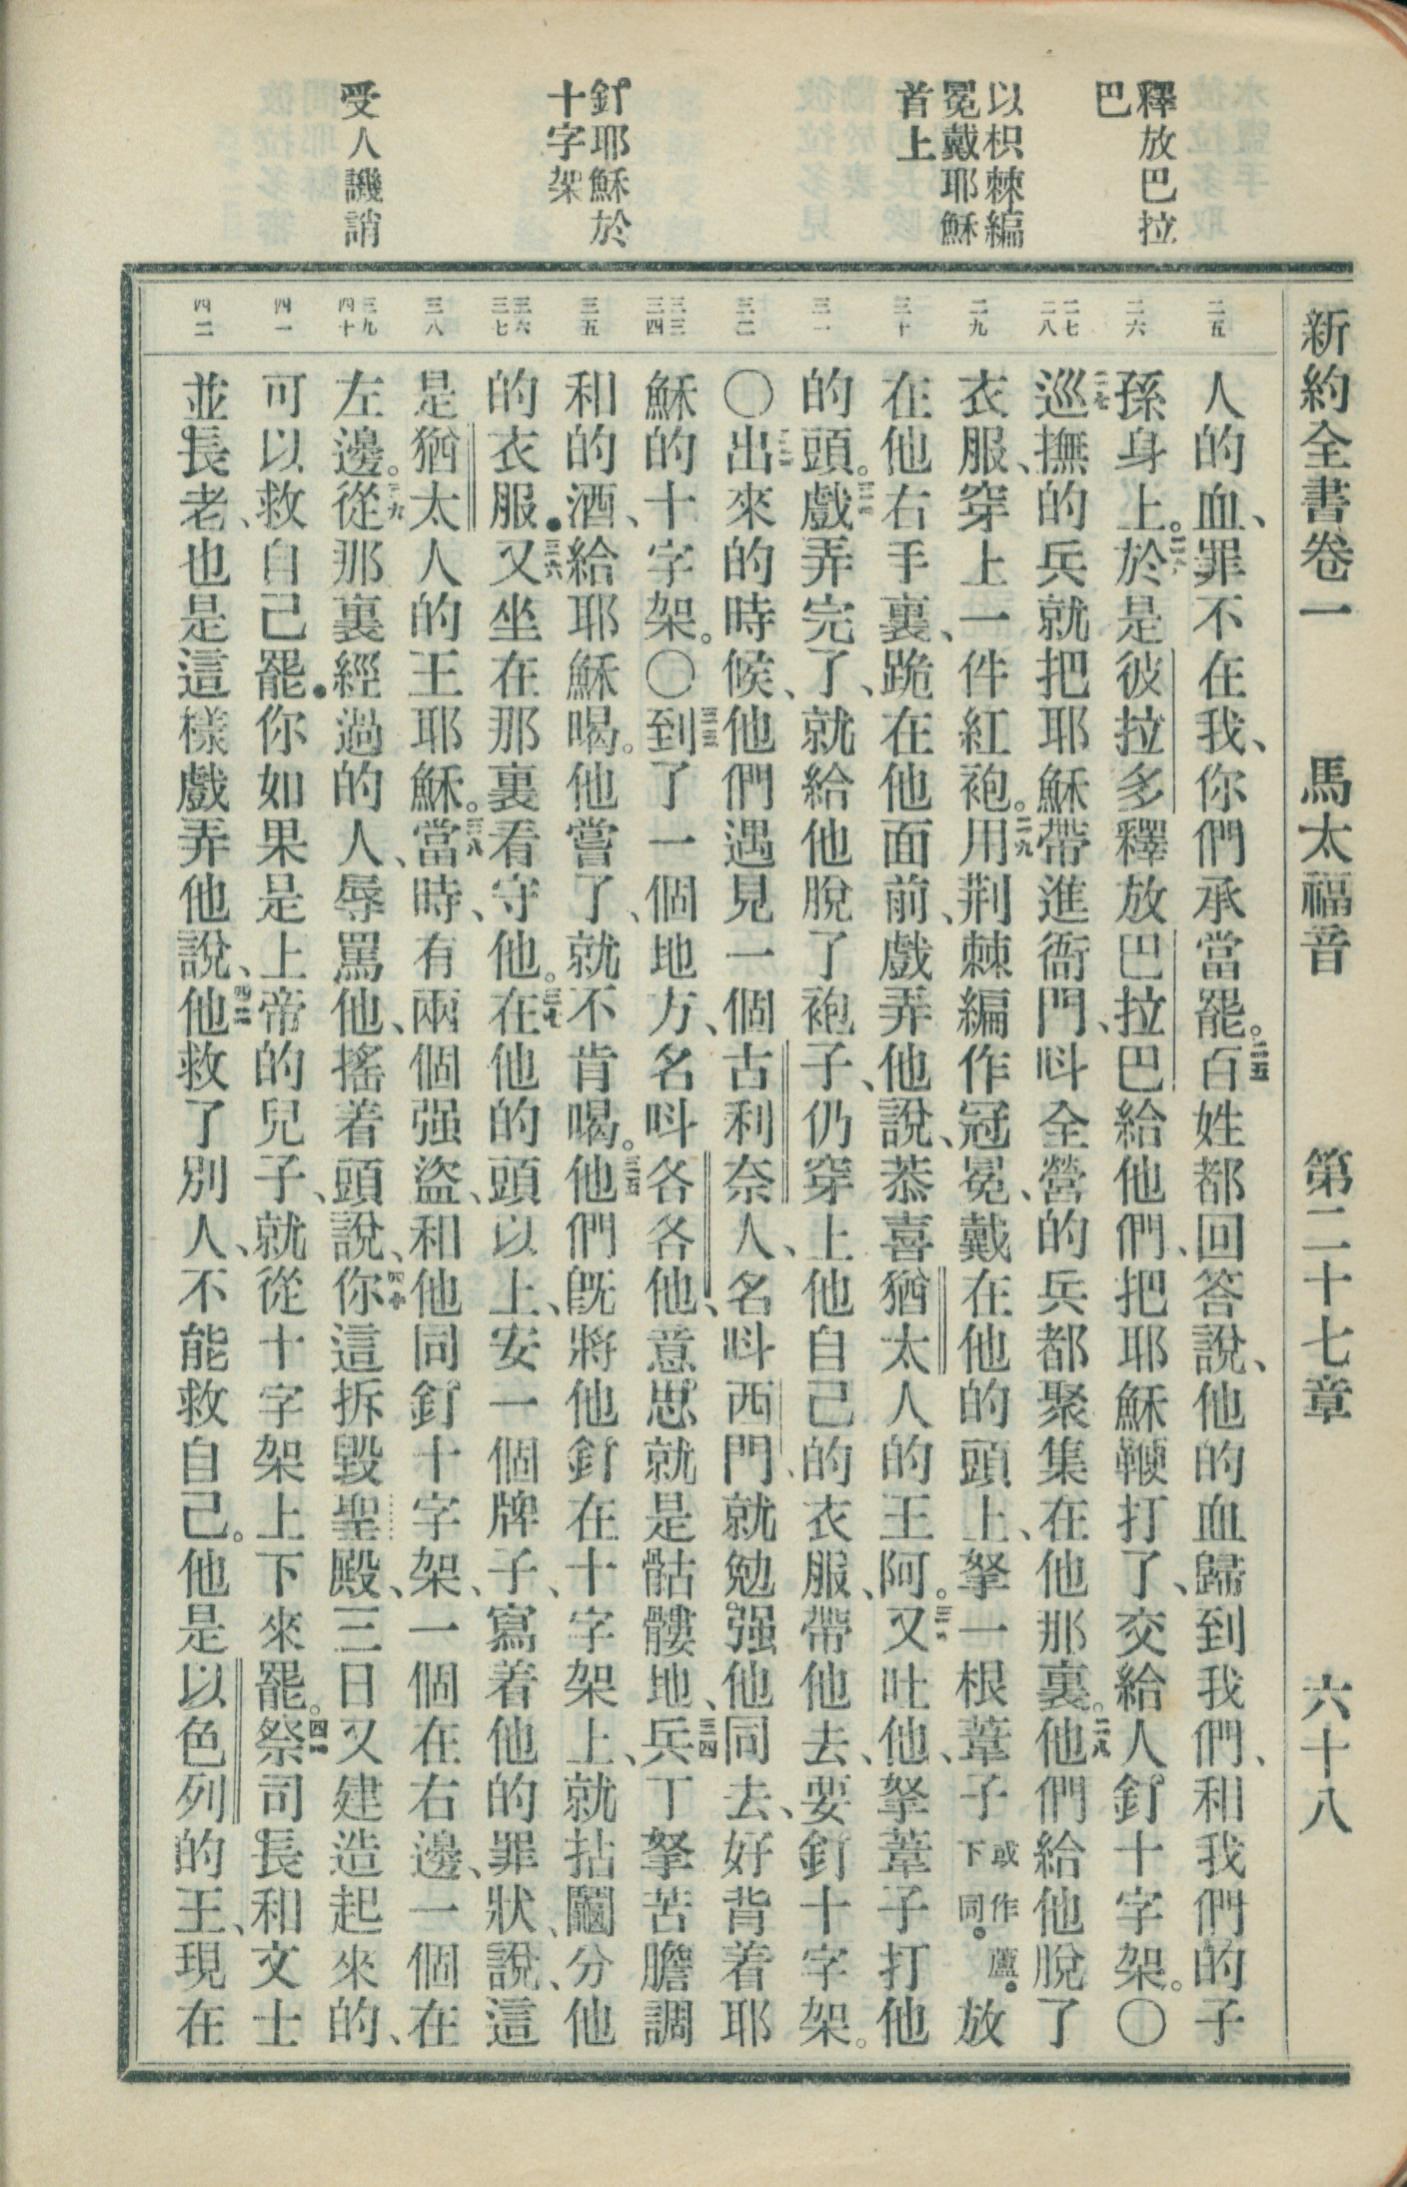 新約全書卷一　馬太福音　第二十七章　六十八
釋放巴拉
巴
以枳棘編
冕戴耶穌
首上
釘耶穌於
十字架
受人譏誚
二五
二六
二七
二八
二九
三十
三一
三二
三三
三四
三五
三六
三七
三八
三九
四十
四一
四二
人的血、罪不在我、你們承當罷。二五百姓都回答說、他的血歸到我們、和我們的子
孫身上。二六於是彼拉多釋放巴拉巴給他們、把耶穌鞭打了、交給人釘十字架。〇
二七巡撫的兵就把耶穌帶進衙門、呌全營的兵都聚集在他那裏。二八他們給他脫了
衣服、穿上一件紅袍。二九用荆棘編作冠冕、戴在他的頭上、拏一根葦子或作蘆。下同。放
在他右手裏、跪在他面前、戲弄他說、恭喜猶太人的王阿。三十又吐他、拏葦子打他
的頭。三一戲弄完了、就給他脫了袍子、仍穿上他自己的衣服、帶他去、要釘十字架。
〇三二出來的時候、他們遇見一個古利奈人、名呌西門、就勉强他同去、好背着耶
穌的十字架。〇三三到了一個地方、名呌各各他、意思就是骷髏地、三四兵丁拏苦膽調
和的酒、給耶穌喝。他嘗了、就不肯喝。三五他們旣將他釘在十字架上、就拈鬮分他
的衣服．三六又坐在那裏看守他。三七在他的頭以上、安一個牌子、寫着他的罪狀、說、這
是猶太人的王耶穌。三八當時、有兩個强盜、和他同釘十字架、一個在右邊、一個在
左邊。三九從那裏經過的人、辱罵他、搖着頭說、四十你這拆毀聖殿、三日又建造起來的、
可以救自己罷．你如果是上帝的兒子、就從十字架上下來罷。四一祭司長和文士
並長老、也是這樣戲弄他說、四二他救了別人、不能救自己。他是以色列的王、現在